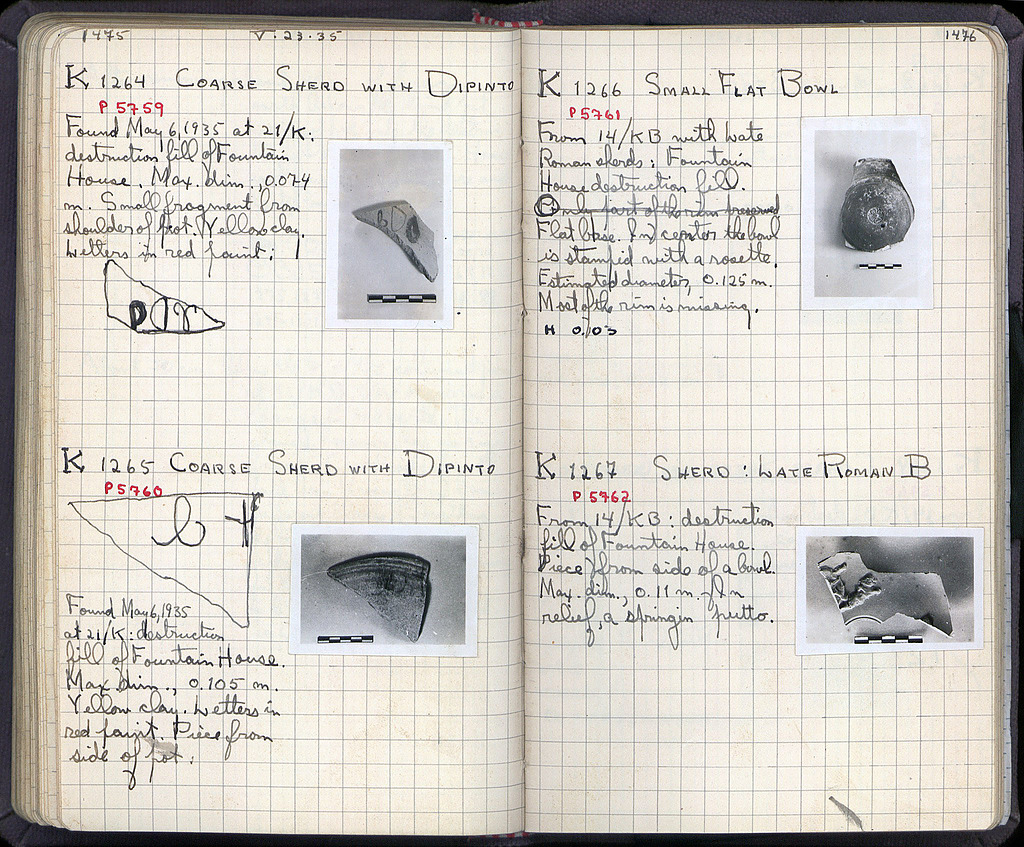 1475 V·23·35
K 1264 COARSE SHERD WITH DIPINTO
P 5759
Found May 6, 1935 at 21/K:
destruction fill of Fountain
House. Max. dim., 0.074
m. Small fragment from
shoulder of pot. Yellow clay.
Letters in red paint:
K 1265 COARSE SHERD WITH DIPINTO
P 5760
Found May 6, 1935
at 21/K: destruction
fill of Fountain House.
Max. dim., 0.105 m.
Yellow clay. Letters in
red paint. Piece from
side of pot.
1476
K 1266 SMALL FLAT BOWL
P 5761
From 14/KB with Late
Roman sherds: Fountain
House destruction fill.
Only part of the rim preserved
Flat base. In center the bowl
is stamped with a rosette.
Estimated diameter, 0.125 m.
Most of the rim is missing.
H 0.03
K 1267 SHERD: LATE ROMAN B
P 5762
From 14/KB: destruction
fill of Fountain House.
Piece from side of a bowl.
Max. dim., 0.11 m. In
relief, a springin putto.